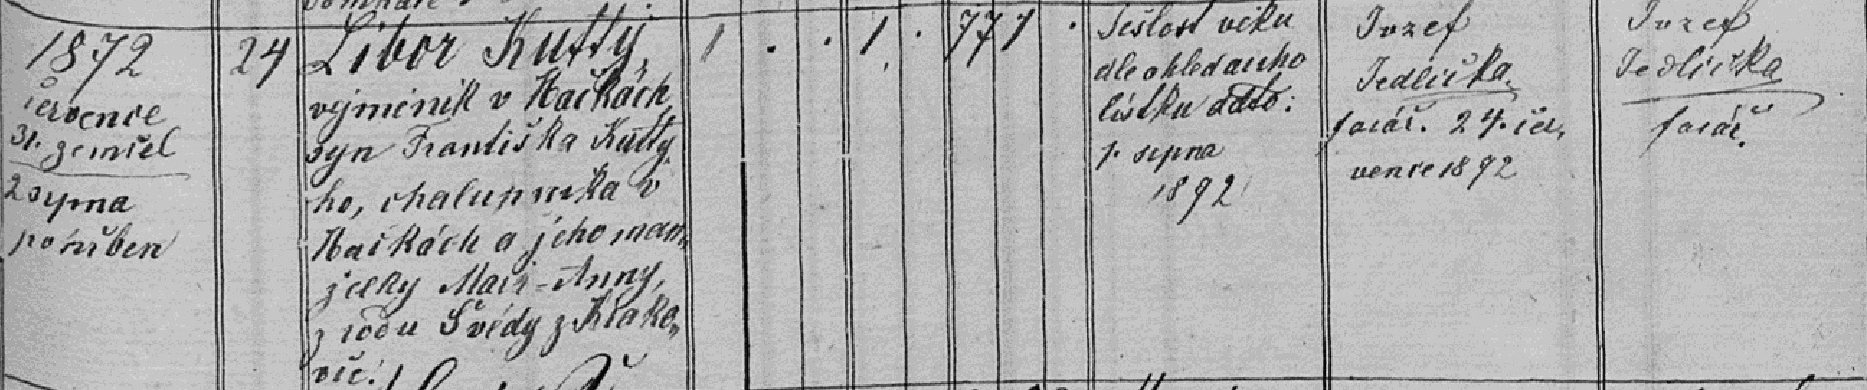 1872
července
31. zemřel
2 srpna
pohřben
24
Libor Kutty,
výměník v Hačkách,
syn Františka Kutty-
ho, chalupníka v
Hačkách a jeho man,
želky Marie-Anny,
z rodu Švédy z Krako,
vič.
1 . . 1 . 77 1 .
Sešlost věku
dle ohledacího
lístku ddto:
1. srpna
1892
Jozef
Jedlička
farář. 24. čer,
vence 1892
Jozef
Jedlička
farář.